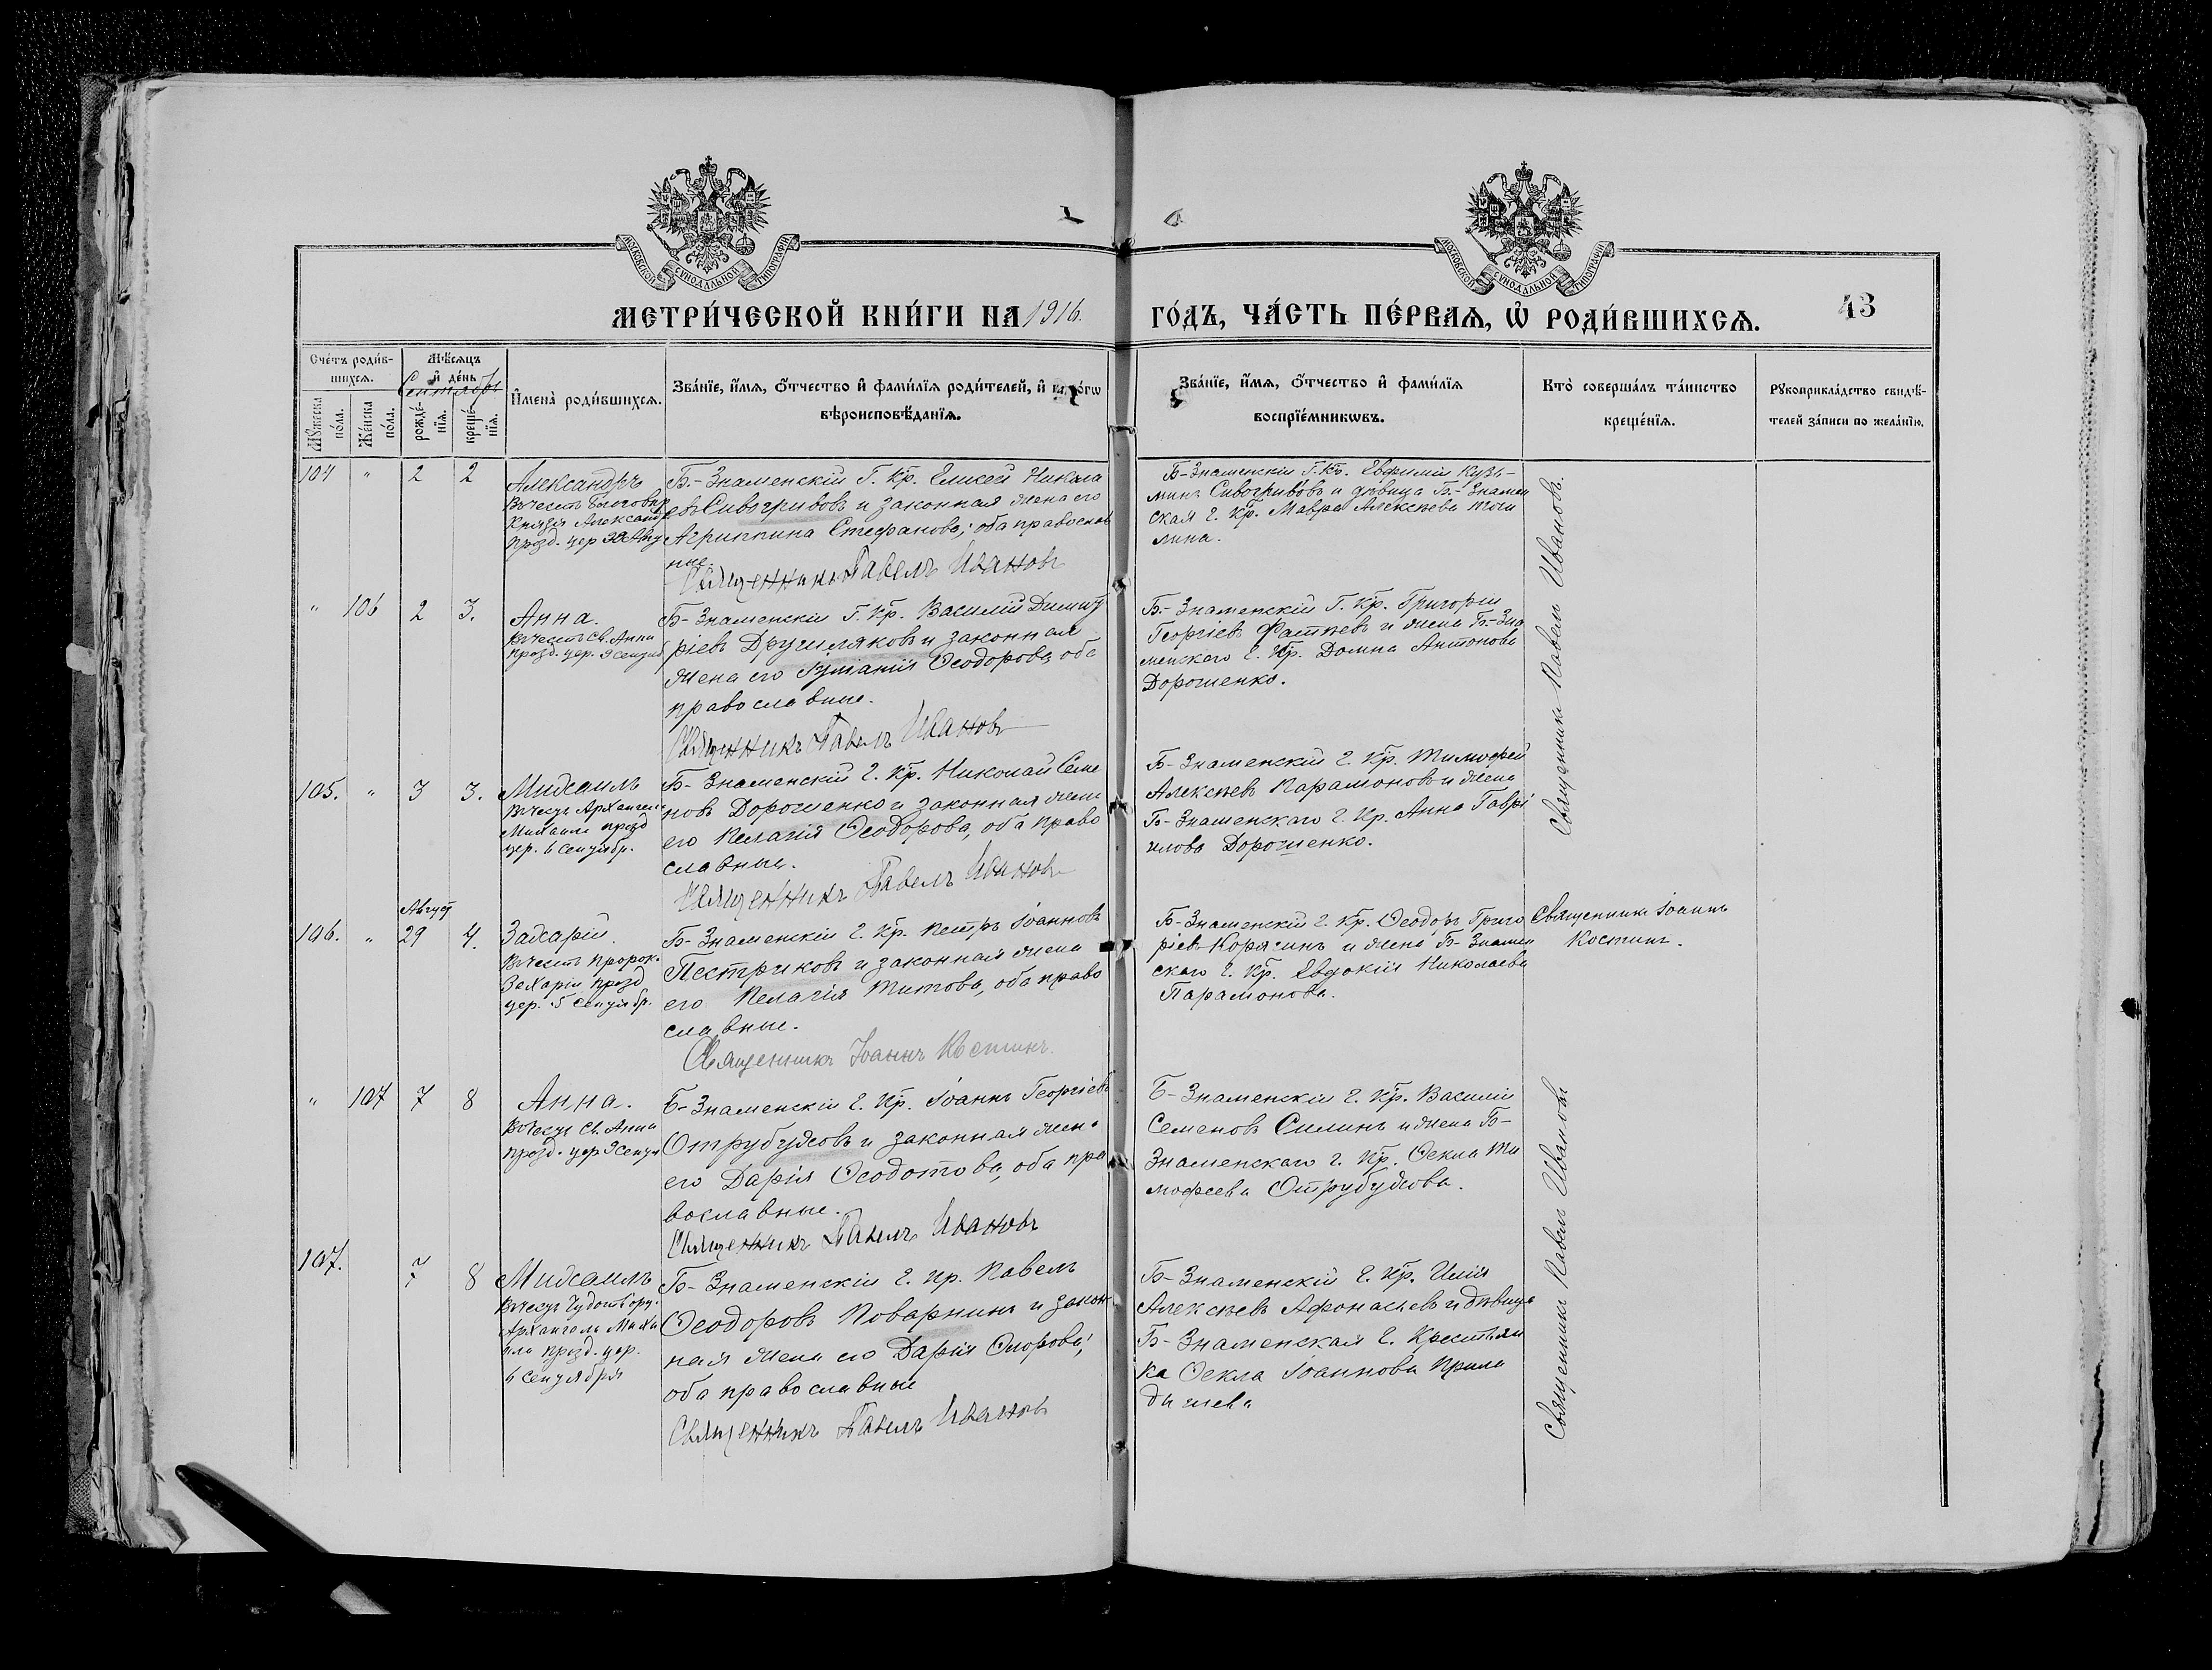 МОСКОВСКОЙ СѴНОДАЛЬНОЙ ТИПОГРАФІИ
МОСКОВСКОЙ СѴНОДАЛЬНОЙ ТИПОГРАФІИ
МЕТРИ́ЧЕСКОЙ КНИ́ГИ НА 1916.
ГО́ДЪ, ЧА́СТЬ ПЕ́РВАѦ, Ѡ҆ РОДИ́ВШИХСѦ.
43
Сче́тъ роди́в-
шихсѧ.
Мꙋ́жеска по́ла.
Же́нска по́ла.
Мѣ́сѧцъ
и҆ де́нь
Сентябрь
рожде́-нїѧ.
креще́-нїѧ.
И҆мена̀ роди́вшихсѧ.
Зва́нїе, и҆́мѧ, ѻ҆́тчество и҆ фами́лїѧ роди́телей, и҆
вѣроисповѣ́данїѧ.
Зва́нїе, и҆́мѧ, ѻ҆́тчество и҆ фами́лїѧ
воспрїе́мникѡвъ.
Кто̀ соверша́лъ та́инство
креще́нїѧ.
Рꙋкоприкла́дство свидѣ́-
телей за́писи по жела́нїю.
104 " 2 2
Александръ
Въ честь Благовѣр
Князя Александр
празд. цер 30 Авгу
Б.-Знаменскій Г. Кр. Елисей Никола
евъ Сивогривовъ и законная жена его
Агриппина Стефанова; оба православ
ные.
Священникъ Павелъ Ивановъ
Б-Знаменскій Г. Кр. Евфимій Кузь-
минъ Сивогривовъ и дѣвица Б.-Знамен
ская г. Кр. Мавра Алексѣева
лина.
Священникъ Павелъ Ивановъ.
" 106 2 3.
Анна.
Въ честь Св. Анны
празд. цер. 9 сентяб
Б-Знаменскій Г. Кр. Василій Димит
ріевъ Другиляковъ и законная
жена его Іуліанія Ѳеодорова, оба
православные.
Священникъ Павелъ Ивановъ
Б.-Знаменскій Г. Кр. Григорій
Георгіевъ и жена Б-Зна
менскаго г. Кр. Домна Антонова
Дорошенко.
105. " 3 3.
Михаилъ
Въ честь Архангел
Михаила празд
цер. 6 сентябр.
Б-Знаменскій г. Кр. Николай Семе
новъ Дорошенко и законная жена
его Пелагія Ѳеодорова, оба право
славные.
Священникъ Павелъ Ивановъ
Б-Знаменскій г. Кр. Тимофей
Алексѣевъ Парамоновъ и жена
Б-Знаменскаго г. Кр. Анна Гаврі
илова Дорошенко.
Август
106. " 29 4.
Захарій.
Въ честь Пророк.
Захаріи празд
цер. 5 сентябр.
Б-Знаменскій г. Кр. Петръ Іоанновъ
Пестриковъ и законная жена
его Пелагія Титова, оба право
славные.
Священникъ Іоаннъ Костинъ.
Б-Знаменскій г. Кр. Ѳеодоръ Григо
ріевъ Корягинъ и жена Б-Знамен
скаго г. Кр. Евдокія Николаева
Парамонова.
Священникъ Іоаннъ
Костинъ.
" 107 7 8
Анна.
Въ честь Св. Анны
празд. цер 9 сентя
Б-Знаменскій г. Кр. Іоаннъ Георгіевъ
Отрубужовъ и законная жен.
его Дарія Ѳеодотова, оба пра
вославные.
Священникъ Павелъ Ивановъ
Б-Знаменскій г. Кр. Василій
Семеновъ Силинъ и жена Б-
Знаменскаго г. Кр. Ѳекла Ти
мофеева Отрубужова.
Священникъ Павелъ Ивановъ
107. 7 8
Михаилъ
Въ честь Чудотвору.
Архангель Миха
ила празд. цер.
6 сентября
Б-Знаменскій г. Кр. Павелъ
Ѳеодоровъ Поварнинъ и закон
ная жена его Дарія
оба православные
Священникъ Павелъ Ивановъ
Б-Знаменскій г. Кр. Илія
Алексѣевъ Афонасьевъ и дѣвица
Б-Знаменская г. Крестьян
ка Ѳекла Іоаннова